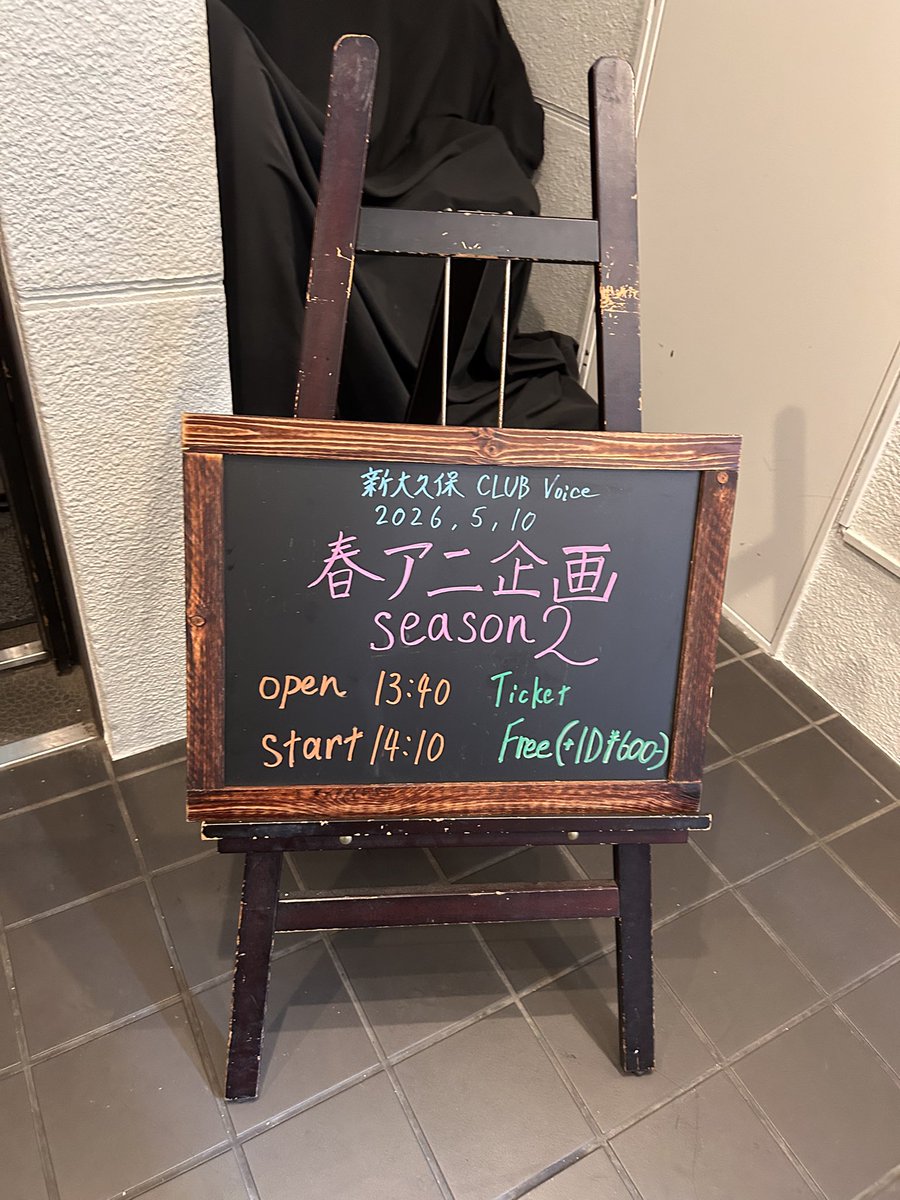 新大久保 CLUB Voice
2026.5.10
春アニ企画
season2
open 13:40
start 14:10
Ticket
Free(+1D¥600-)